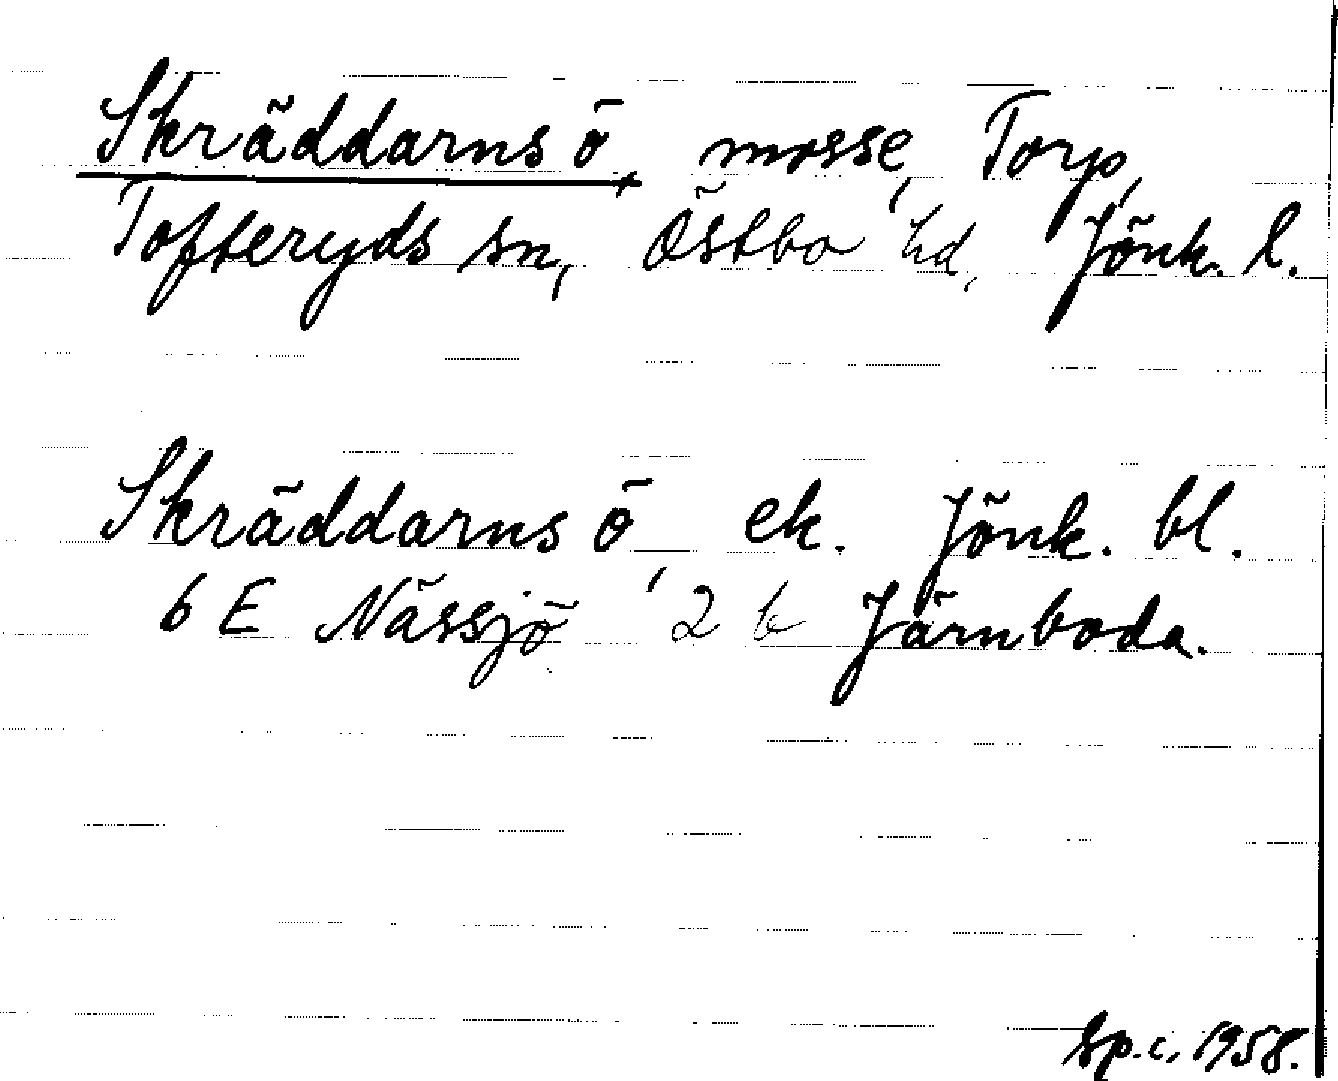 Skräddarns ö, mosse, Torp,
Tofteryds sn, Östbo hd, Jönk. l.
Skräddarns ö, ek. Jönk. bl.
6 E Nässjö 2 b Järnboda.
Sp.c. 1958.